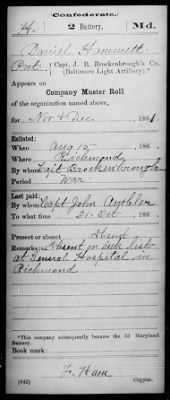 (Confederate.)
H. 2 Battery. Md.
Daniel Hammett
Pvt, Capt. J. B. Brockenbrough's Co.
(Baltimore Light Artillery).*
Appears on
Company Muster Roll
of the organization named above,
for Nov & Dec, 1861.
Enlisted:
When Aug 15, 186 .
Where Richmond
By whom Capt Brockenbrough
Period War
Last paid:
By whom Capt John
To what time 31 Oct, 186 .
Present or absent Absent
Remarks: Absent on sick list
at General Hospital in
Richmond
*This company subsequently became the 2d Maryland
Battery.
Book mark:
F. Ham
(642) Copyist.